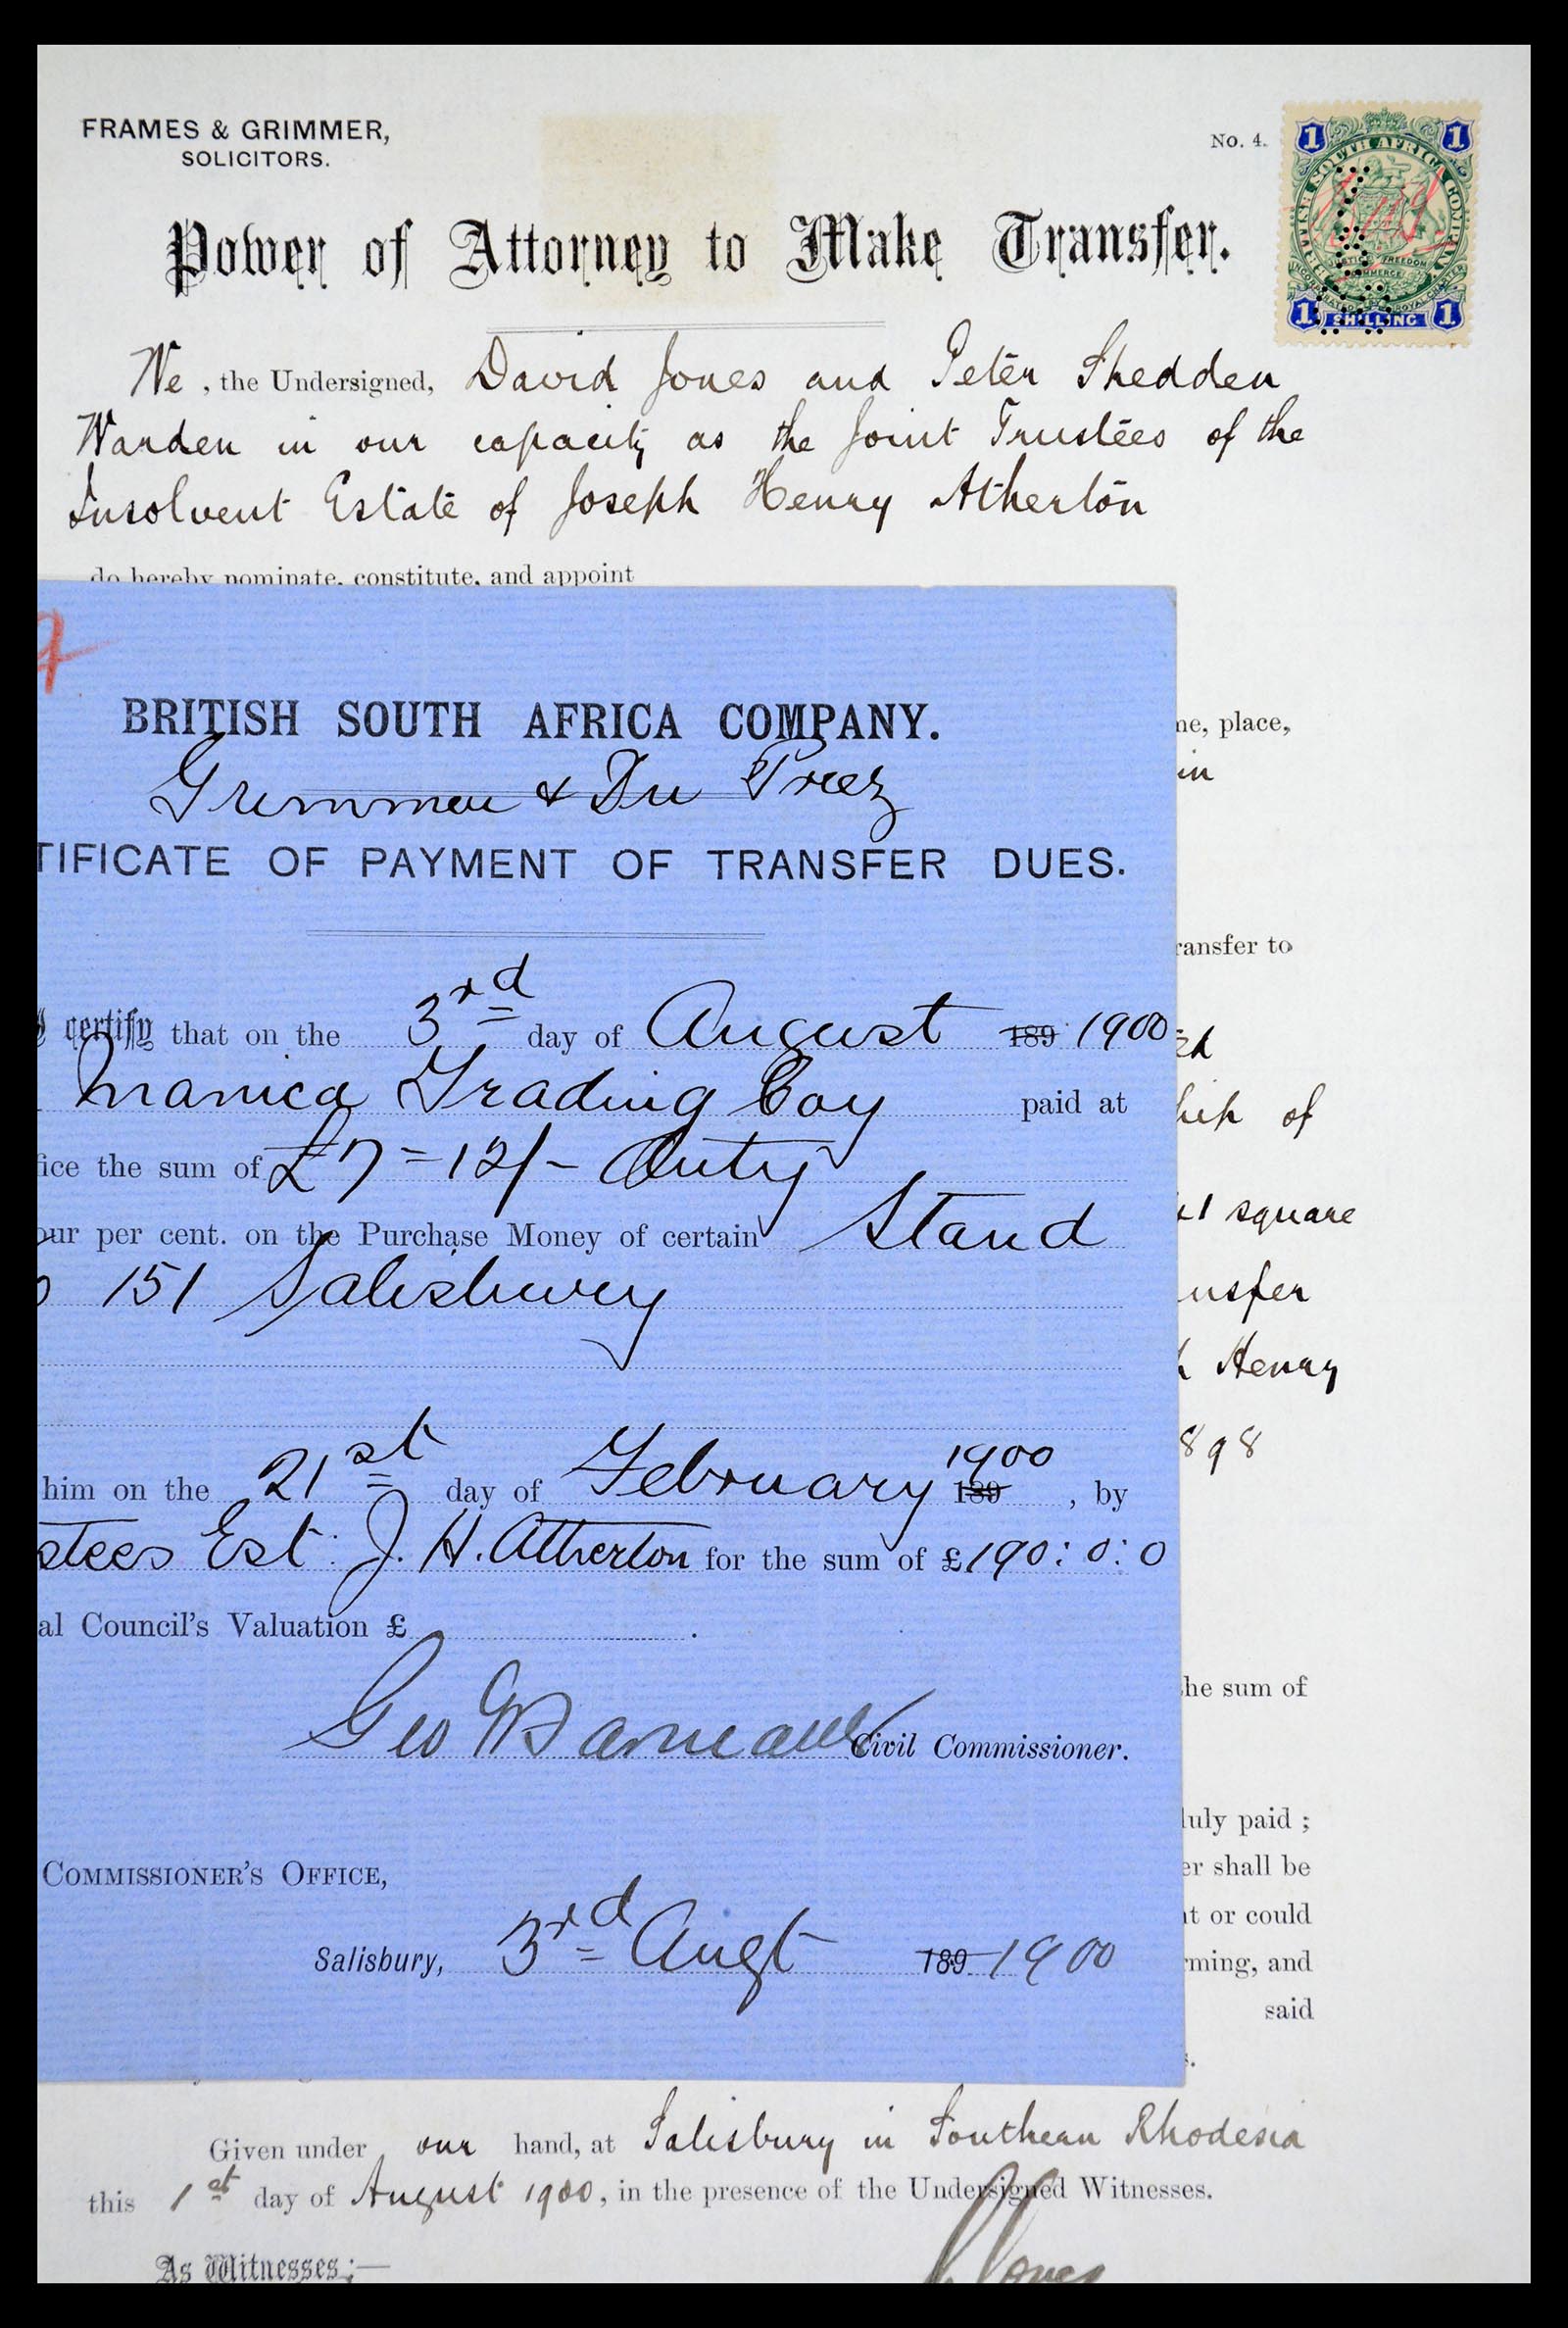 FRAMES & GRIMMER,
SOLICITORS.
No. 4.
1 1
BRITISH SOUTH AFRICA COMPANY
JUSTICE FREEDOM
COMMERCE
INCORPORATED BY ROYAL CHARTER
1 SHILLING 1
Power of Attorney to Make Transfer.
We, the Undersigned, David Jones and Peter Shedden
Warden in our capacity as the Joint Trustees of the
Insolvent Estate of Joseph Henry Atherton
do hereby nominate, constitute, and appoint
BRITISH SOUTH AFRICA COMPANY.
Grimmer & Du Preez
TIFICATE OF PAYMENT OF TRANSFER DUES.
certify that on the 3rd day of August 189 1900
Manica Trading Coy paid at
ice the sum of £7=12/- Duty
our per cent. on the Purchase Money of certain Stand
151 Salisbury
him on the 21st day of February 189 1900, by
stees Est. J. H. Atherton for the sum of £190:0:0
al Council's Valuation £ .
Geo
Civil Commissioner.
COMMISSIONER'S OFFICE,
Salisbury, 3rd Augt 189 1900
ne, place,
in
ransfer to
hip of
square
nsfer
Henry
898
he sum of
duly paid ;
er shall be
t or could
rming, and
said
s.
Given under our hand, at Salisbury in Southern Rhodesia
this 1st day of August 1900, in the presence of the Undersigned Witnesses.
As Witnesses:—
Jones